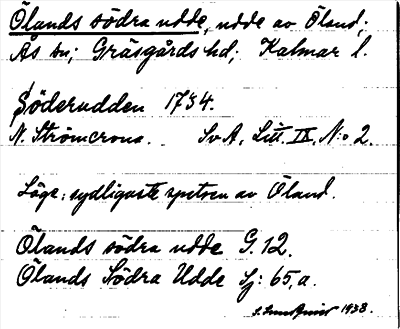 Ölands södra udde, udde av Öland;
Ås sn; Gräsgårds hd; Kalmar l.
Söderudden 1734.
N. Strömcrona. SvA, Litt. IX, N:o 2.
Läge: sydligaste spetsen av Öland.
Ölands södra udde G. 12.
Ölands Södra Udde Sj: 65,a.
S. Lundquist 1933.